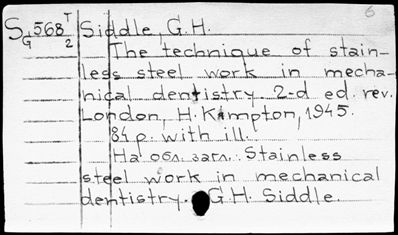 6
SG 568 T/2 Siddle, G.H.
The technique of stain-
less steel work in mecha-
nical dentistry. 2-d ed. rev.
London, H. Kimpton, 1945.
84 p. with ill.
На обл. загл.: Stainless
steel work in mechanical
dentistry. G.H. Siddle.